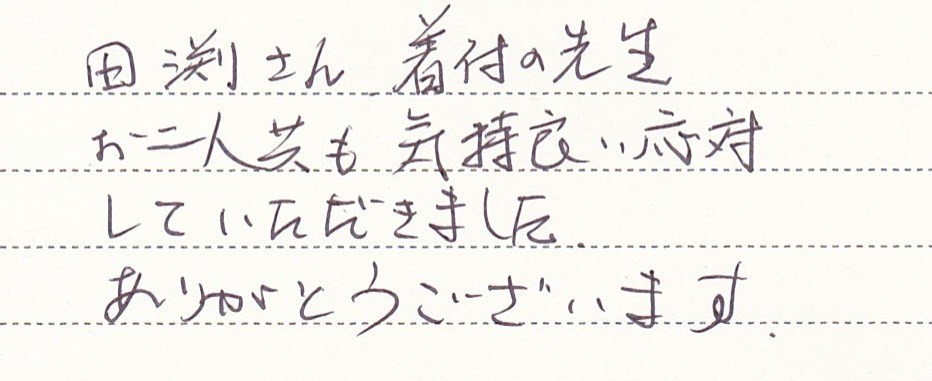 田渕さん 着付の先生
お二人共も 気持良い応対
していただきました.
ありがとうございます.